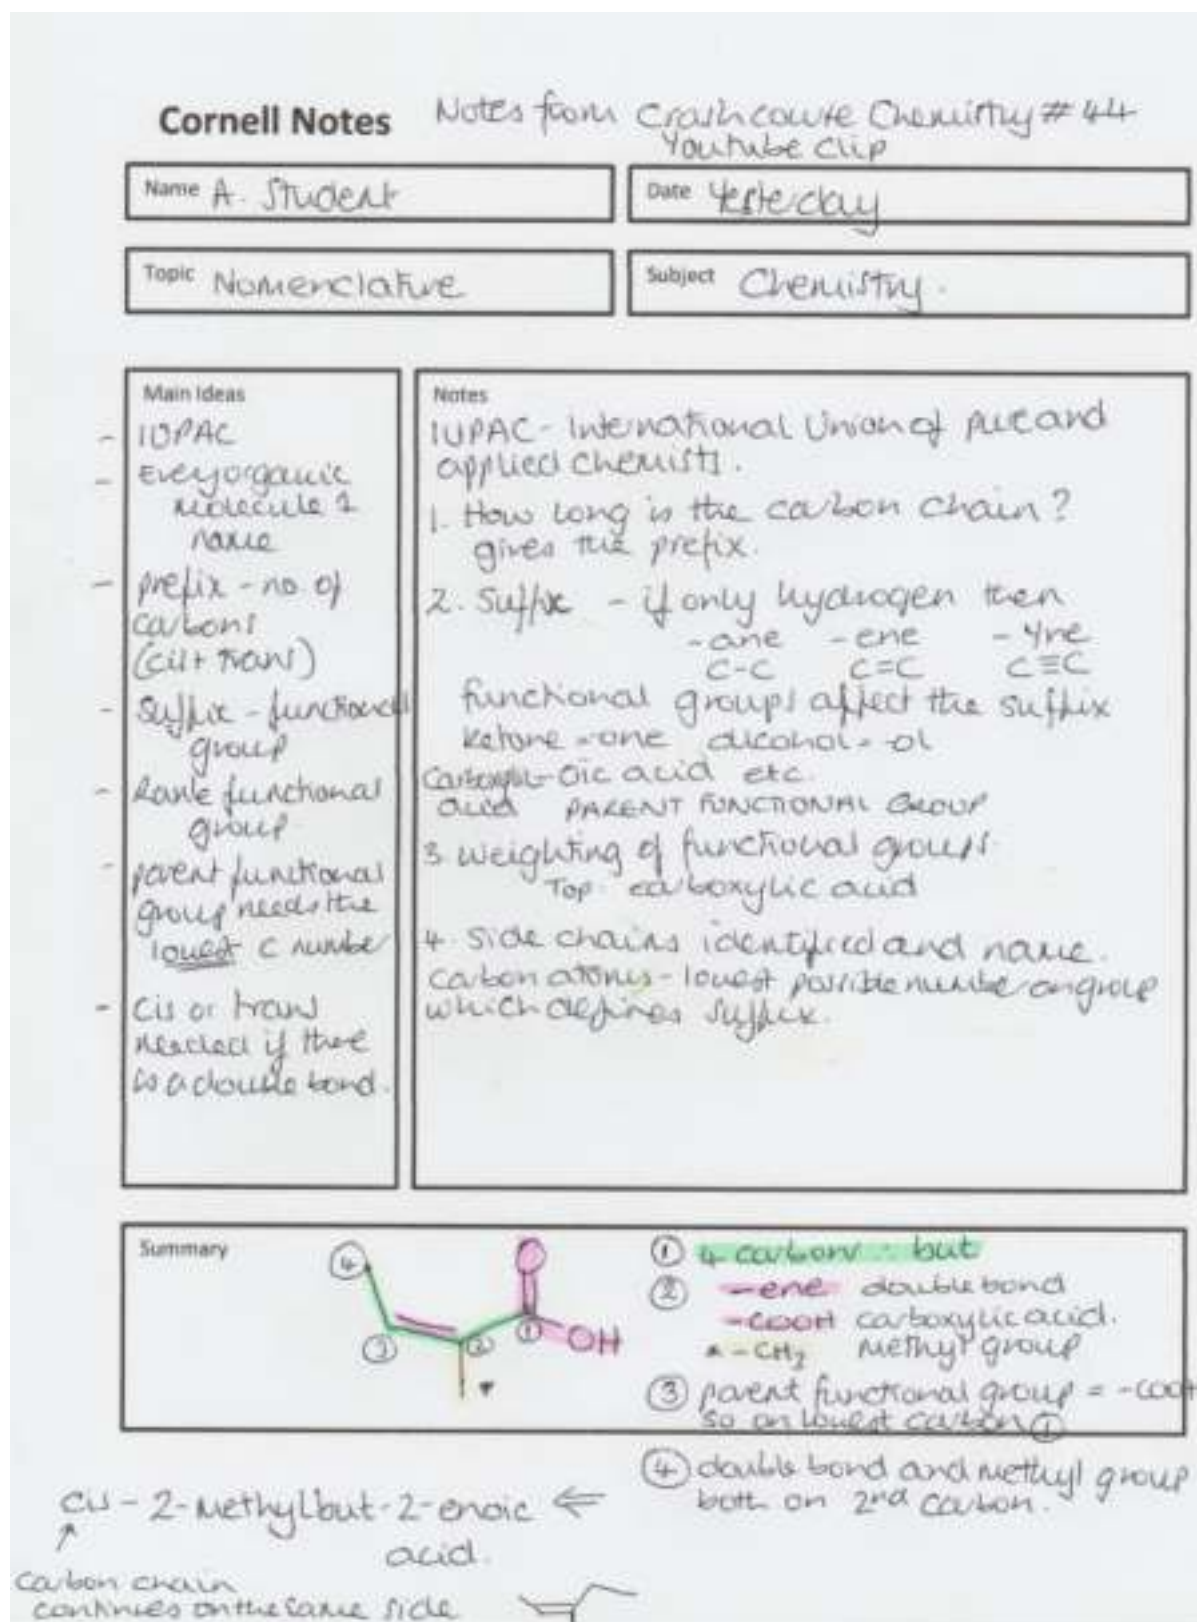 Cornell Notes Notes from Crashcourse Chemistry # 44
Youtube Clip
Name A. Student
Date Yesterday
Topic Nomenclature
Subject Chemistry.
Main Ideas
- IUPAC
- Every organic
molecule 1
name
- prefix - no. of
carbons
(cis + trans)
- Suffix - functional
group
- Rank functional
group
- parent functional
group needs the
lowest C number
- Cis or trans
needed if there
is a double bond.
Notes
IUPAC - International Union of pure and
applied chemists.
1. How long is the carbon chain?
gives the prefix.
2. Suffix - if only hydrogen then
-ane -ene -yne
C-C C=C C≡C
functional groups affect the suffix
Ketone -one alcohol - -ol
Carboxylic -oic acid etc.
acid PARENT FUNCTIONAL GROUP
3. Weighting of functional groups.
Top. carboxylic acid
4. Side chains identified and name.
Carbon atoms - lowest possible number on group
which defines suffix.
Summary
④ ③ ② ① OH
① 4 carbons ∴ but
② -ene double bond
-COOH carboxylic acid.
-CH₂ methyl group
③ parent functional group = -COOH
so on lowest carbon ①
④ double bond and methyl group
both on 2nd carbon.
cis - 2-methylbut-2-enoic ⇐
acid.
↑
Carbon chain
continues on the same side